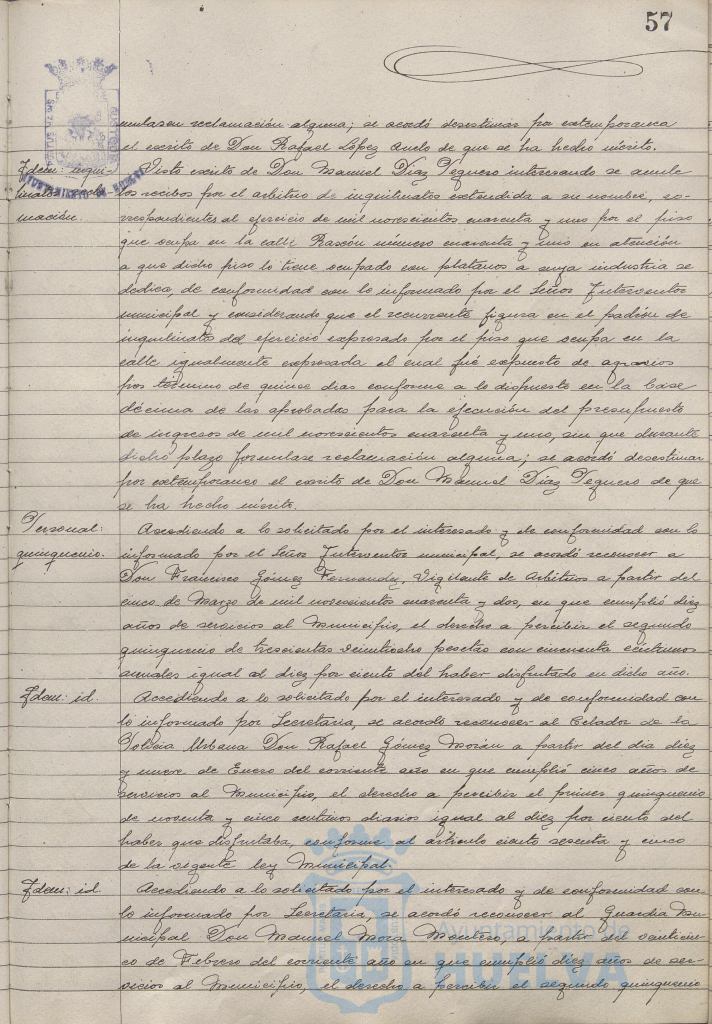 57
mulasen reclamación alguna; se acordó desestimar por extemporanea
el escrito de Don Rafael López de que se ha hecho mérito.
Idem: inqui- Visto escrito de Don Manuel Díaz Pequero interesando se anule
linatos. mación.
los recibos por el arbitrio de inquilinatos extendida a su nombre, co-
rrespondientes al ejercicio de mil novecientos cuarenta y uno por el piso
que ocupa en la calle Rascón número cuarenta y uno en atención
a que dicho piso lo tiene ocupado con platanos a cuya industria se
dedica, de conformidad con lo informado por el Señor Interventor
municipal y considerando que el recurrente figura en el padrón de
inquilinato del ejercicio expresado por el piso que ocupa en la
calle igualmente expresada el cual fué expuesto de agravios
por término de quince dias conforme a lo dispuesto en la base
décima de las aprobadas para la ejecución del presupuesto
de ingresos de mil novecientos cuarenta y uno, sin que durante
dicho plazo formulase reclamación alguna; se acordó desestimar
por extemporaneo el escrito de Don Manuel Díaz Pequero de que
se ha hecho mérito.
Personal: Accediendo a lo solicitado por el interesado y de conformidad con lo
quinquenio. informado por el Señor Interventor municipal, se acordó reconocer a
Don Francisco Gómez Fernandez, Vigilante de Arbitrios a partir del
cinco de Marzo de mil novecientos cuarenta y dos, en que cumplió diez
años de servicios al Municipio, el derecho a percibir el segundo
quinquenio de trescientas veintiocho pesetas con cincuenta centimos
anuales igual al diez por ciento del haber disfrutado en dicho año.
Idem: id. Accediendo a lo solicitado por el interesado y de conformidad con
lo informado por Secretaria, se acordó reconocer al Celador de la
Policia Urbana Don Rafael Gómez Morán a partir del dia diez
y nueve de Enero del corriente año en que cumplió cinco años de
servicios al Municipio, el derecho a percibir el primer quinquenio
de noventa y cinco centimos diarios igual al diez por ciento del
haber que disfrutaba, conforme al articulo ciento sesenta y cinco
de la vigente ley Municipal.
Idem: id. Accediendo a lo solicitado por el interesado y de conformidad con
lo informado por Secretaria, se acordó reconocer al Guardia Mu-
nicipal Don Manuel Mora Montero, a partir del veinticin-
co de Febrero del corriente año en que cumplió diez años de ser-
vicios al Municipio, el derecho a percibir el segundo quinquenio
Ayuntamiento de
HUELVA